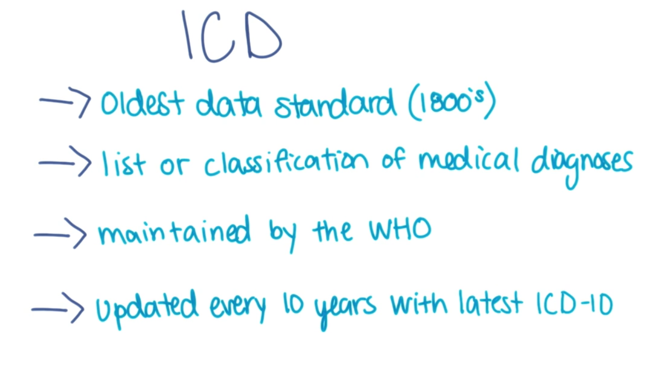 ICD
→ Oldest data standard (1800's)
→ list or classification of medical diagnoses
→ maintained by the WHO
→ updated every 10 years with latest ICD-10